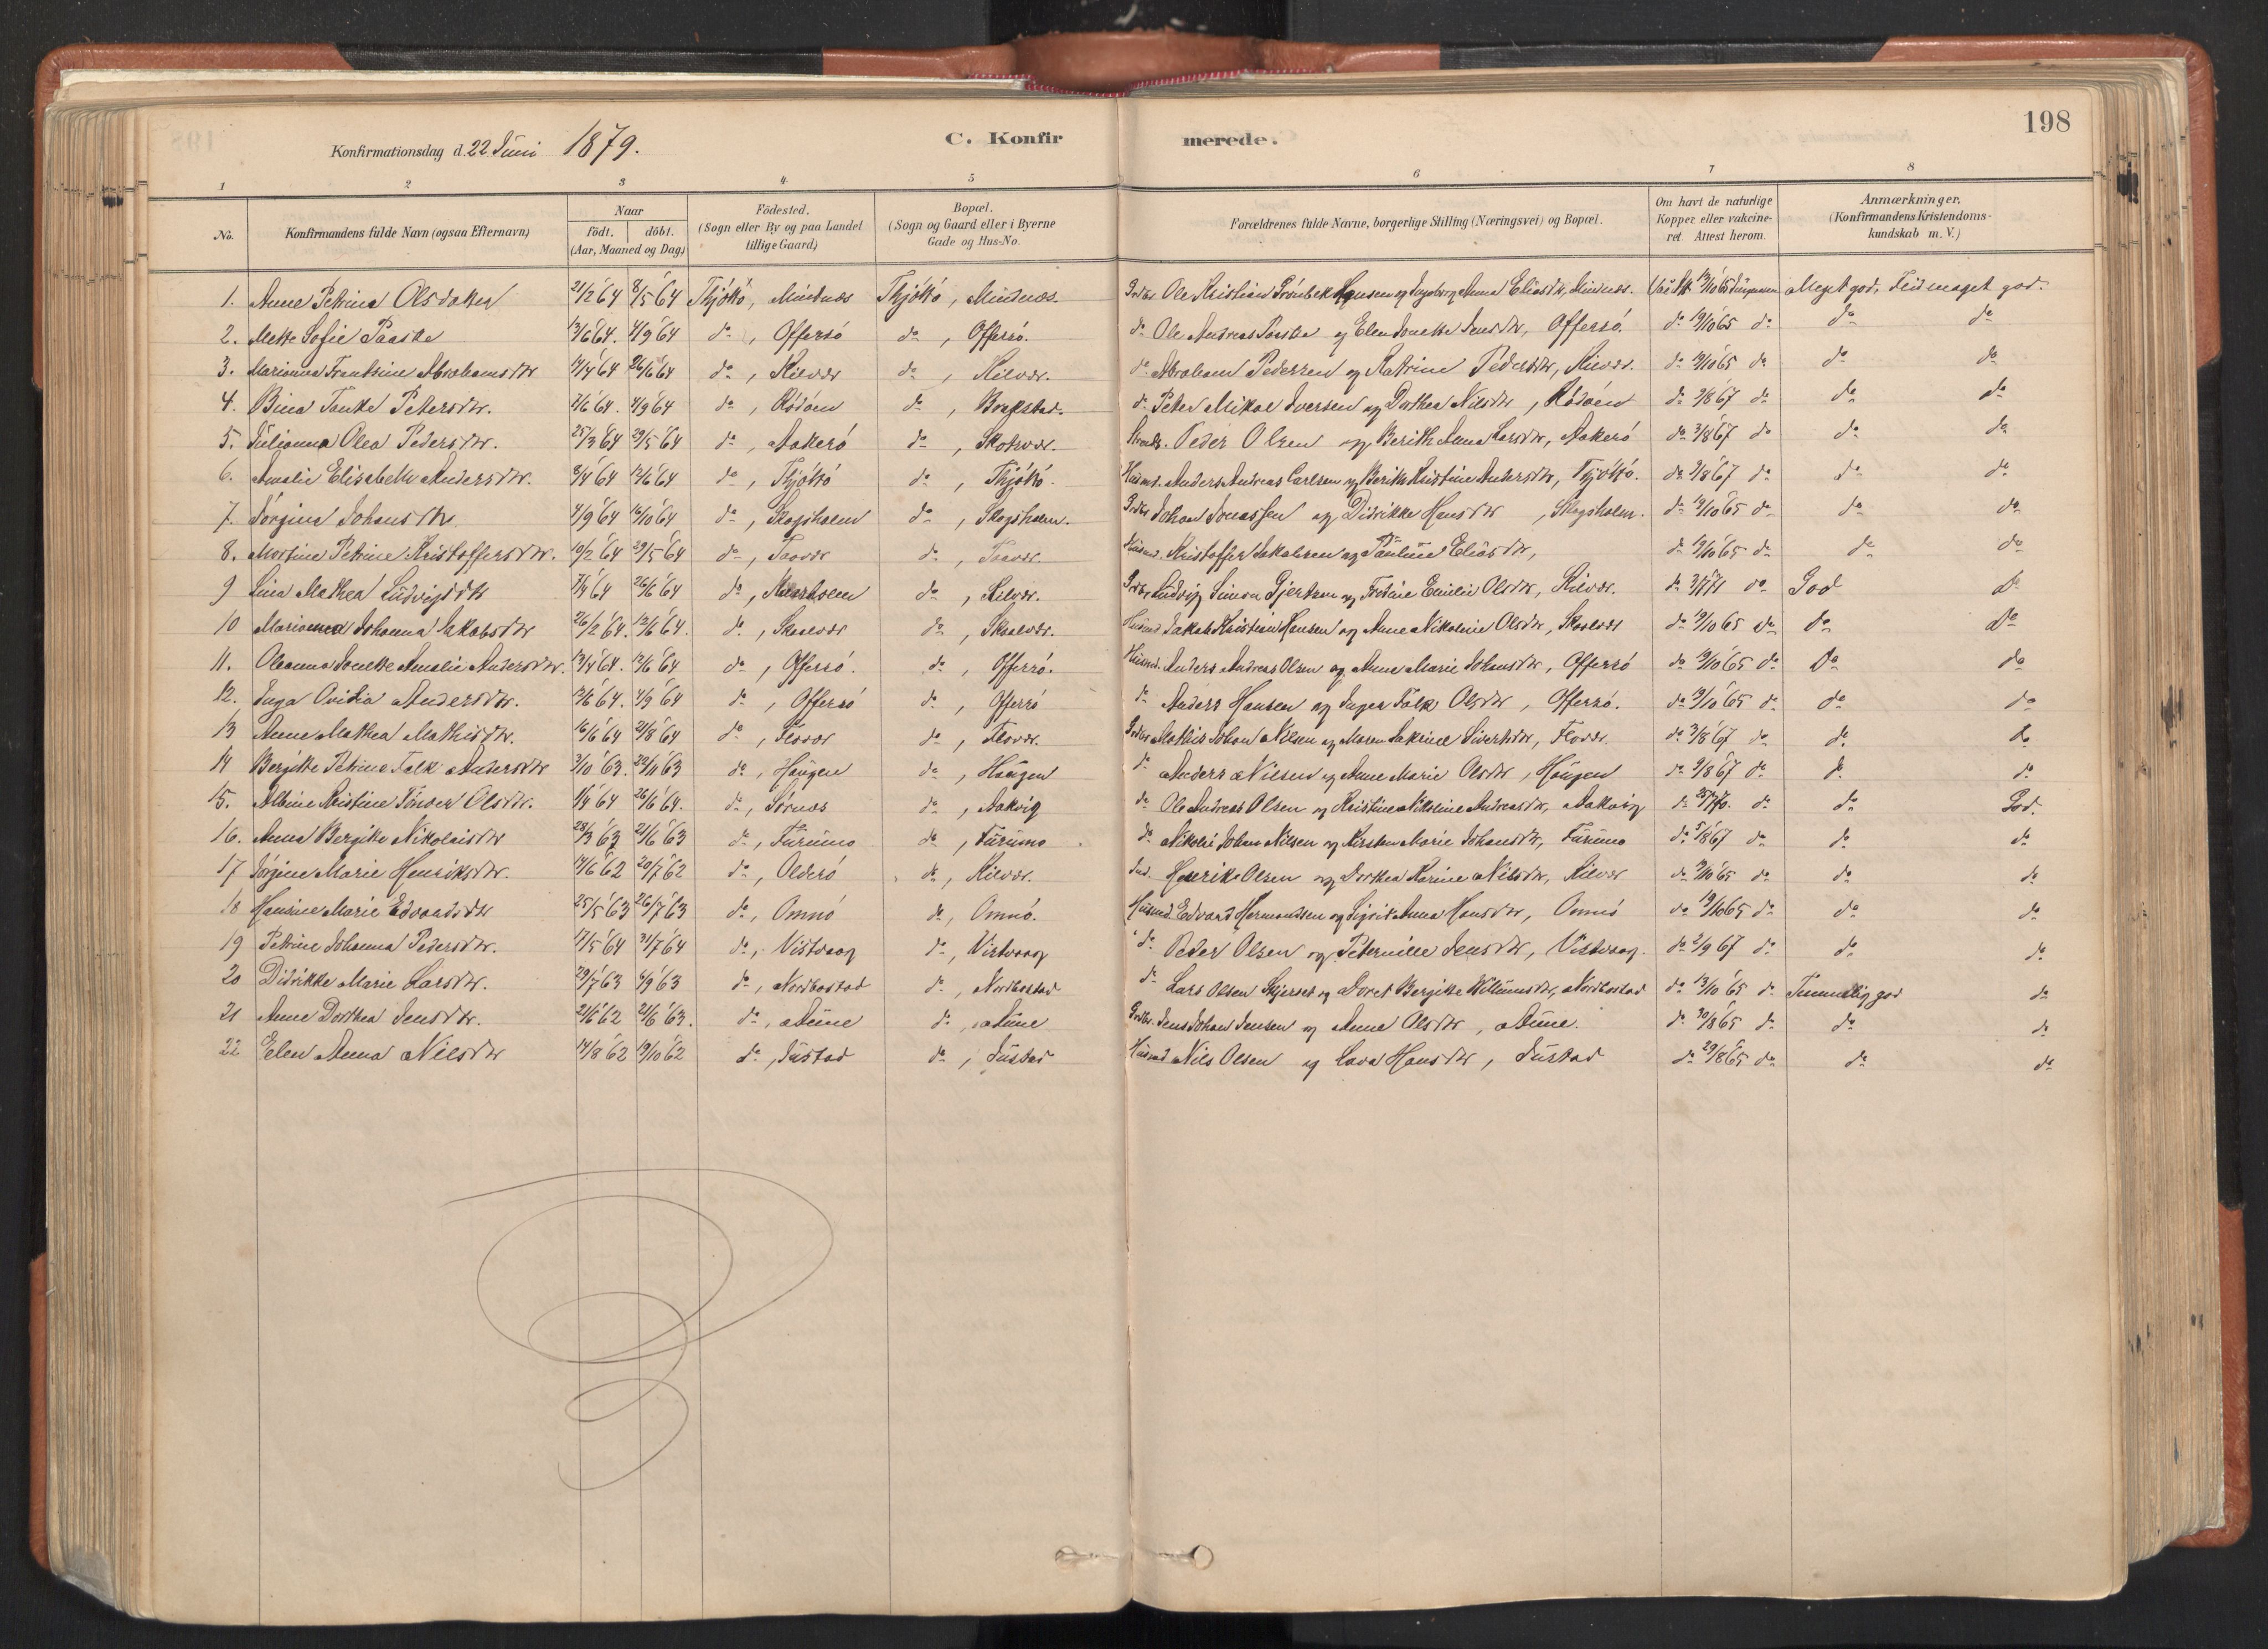 198
Konfirmationsdag d. 22 Juni 1879.
C. Konfirmerede.
1 2 3 4 5 6 7 8
No. Konfirmandens fulde Navn (ogsaa Efternavn) Naar födt. döbt. (Aar, Maaned og Dag) Födested. (Sogn eller By og paa Landet tillige Gaard) Bopæl. (Sogn og Gaard eller i Byerne Gade og Hus-No. Forældrenes fulde Navne, borgerlige Stilling (Næringsvei) og Bopæl. Om havt de naturlige Kopper eller vakcineret. Attest herom. Anmærkninger. (Konfirmandens Kristendomskundskab m. V.)
1. Anne Petrina Olsdatter 21/2 64 8/5 64 Thjøttö, Mindnæs Thjöttö, Mindnæs Ole Kristian Hansen og Ingeborg Anna Eliasdtr, Mindnæs. 13/10 65 Meget god. Flid meget god.
2. Mette Sofie Paaske 13/6 64. 4/9 64 do, Offersö do, Offersö. do Ole Andreas Paaske og Elen Jonette Jensdtr, Offersö. do 19/10 65 do do do
3. Marianna Frantsine Abrahamsdtr 11/4 64 26/6 64 do, Kilvær do, Kilvær. do Abraham Pedersen og Katrine Pedersdtr, Kilvær. do 19/10 65 do do do
4. Bina Tanke Petersdtr. 2/6 64. 4/9 64 do, Rödöen do, Brækstad. do Peter Mikal Iversen og Dorthea Nilsdtr, Rödöen do 9/8 67 do do do
5. Julianna Olea Pedersdtr. 25/3 64 29/5 64 do, Aakerö do, Skotsvær. Peder Olsen og Berith Anna Larsdtr, Aakerö do 3/8 67 do do do
6. Amalie Elisabeth Andersdtr. 8/4 64 12/6 64 do, Thjöttö do, Thjöttö. Husmd. Anders Andreas Carlsen og Berith Kristine Andersdtr, Thjöttö. do 9/8 67 do do do
7. Jörgina Johansdtr. 4/9 64 16/10 64 do, Skogsholm do, Skogsholm. Johan Jonassen og Didrikke Hansdtr, Skogsholm. do 19/10 65 do do do
8. Martine Petrine Kristoffersdtr. 10/2 64 29/5 64 do, Taavær do, Taavær. Husmd. Kristoffer Jakobsen og Pauline Eliasdtr, do 19/10 65 do do do
9 Lina Mathea Ludvigsdtr 7/4 64 26/6 64 do, do, Kilvær. Ludvig Simon Gjertsen og Fredrine Emilie Olsdtr, Kilvær. do do God do
10 Marianna Johanna Jakobsdtr 26/2 64. 12/6 64. do, Skaalvær do, Skaalvær. Husmd Jakob Kristian Hansen og Anne Nikoline Olsdtr, Skaalvær do 19/10 65 do do do
11. Oleanna Jonette Amalie Andersdtr. 12/4 64. 12/6 64 do, Offersö. do, Offersö. Husmd. Anders Andreas Olsen og Anne Marie Johansdtr, Offersö do 19/10 65 do do do
12. Inga Ovidia Andersdtr. 12/6 64. 4/9 64 do, Offersö do, Offersö do Anders Hansen og Inger Falk Olsdtr, Offersö. do 19/10 65 do do do
13 Anne Mathea Mathisdtr. 16/6 64 21/8 64 do, Flovær do, Flovær. Mathis Johan Nilsen og Maren Sakrine Sivertsdtr, Flovær. do 3/8 67 do do do
14 Bergitte Petrine Falk Andersdtr 3/10 63. 22/11 63 do, Haugen do, Haugen do Anders Nilsen og Anne Marie Olsdtr, Haugen do 9/8 67 do do do
15. Albine Kristine Tönder Olsdtr. 1/4 64 26/6 64. do, Sörnæs do, Aakvig do Ole Andreas Olsen og Kristine Nikoline Andreasdtr, Aakvig do 25/7 70. do do God.
16. Anna Bergitte Nikolaisdtr 28/3 63 21/6 63 do, Furumo do, Furumo do Nikolai Johan Nilsen og Kirsten Marie Johansdtr, Furumo do 5/8 67 do do do
17 Jörgine Marie Henriksdtr. 14/6 62 20/7 62 do, Olderö do, Kilvær. Ind. Henrik Olsen og Dorthea Karine Nilsdtr, Kilvær do 19/10 65 do do do
18 Hansine Marie Edvardsdtr 25/5 63 26/7 63 do, Omnö do, Omnö. Husmd Edvard Hermandsen og Sigrid Anna Hansdtr, Omnö do 19/10 65 do do do
19 Petrine Johanna Pedersdtr. 17/5 64 31/7 64 do, Vistvaag do, Vistvaag do Peder Olsen og Peternille Jensdtr, Vistvaag. do 2/9 67 do do do
20 Didrikke Marie Larsdtr. 29/7 63 6/9 63 do, Nordbostad do, Nordbostad do Lars Olsen og Doret Bergitte Willumsdtr, Nordbostad do 13/10 65 do Temmelig god do
21 Anne Dorthea Jensdtr. 21/6 62 21/6 63. do, Aune do, Aune Jens Johan Jensen og Anna Olsdtr, Aune. do 30/8 65 do do do
22 Elen Anna Nilsdtr 14/8 62 19/10 62 do, Justad do, Justad Husmd Nils Olsen og Lava Hansdtr, Justad do 29/8 65 do do do